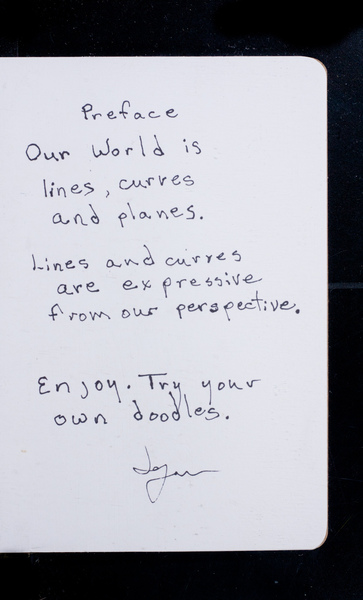 Preface
Our World is
lines, curves
and planes.
Lines and curves
are expressive
from our perspective.
Enjoy. Try your
own doodles.